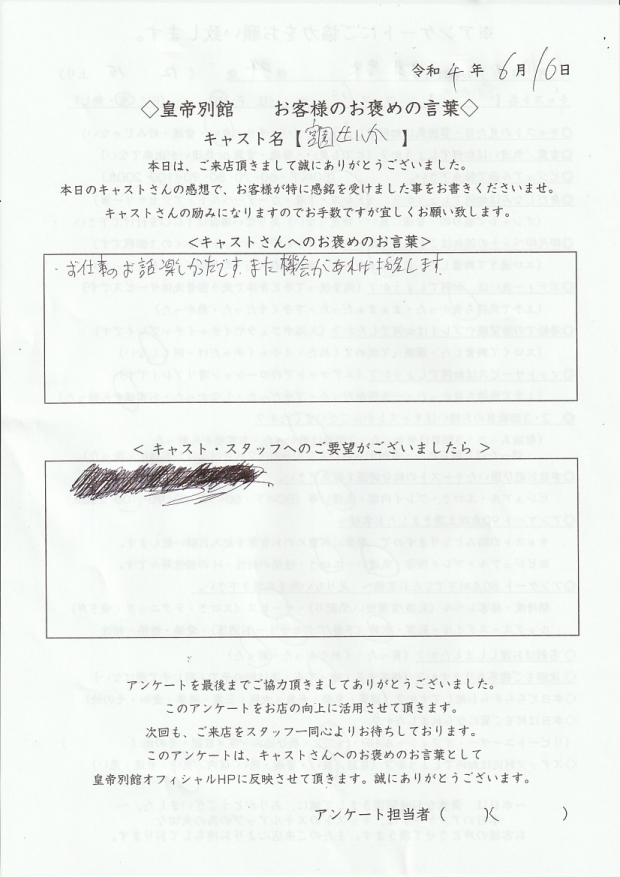 令和 4 年 6 月 16 日
◇皇帝別館　お客様のお褒めの言葉◇
キャスト名【　　】
本日は、ご来店頂きまして誠にありがとうございました。
本日のキャストさんの感想で、お客様が特に感銘を受けました事をお書きくださいませ。
キャストの励みになりますのでお手数ですが宜しくお願い致します。
<キャストさんへのお褒めのお言葉>
・お仕事のお話楽しかったです。また機会があれば指名します。
< キャスト・スタッフへのご要望がございましたら >
アンケートを最後までご協力頂きましてありがとうございました。
このアンケートをお店の向上に活用させて頂きます。
次回も、ご来店をスタッフ一同心よりお待ちしております。
このアンケートは、キャストさんへのお褒めのお言葉として
皇帝別館オフィシャルHPに反映させて頂きます。誠にありがとうございます。
アンケート担当者（　　）（　　）